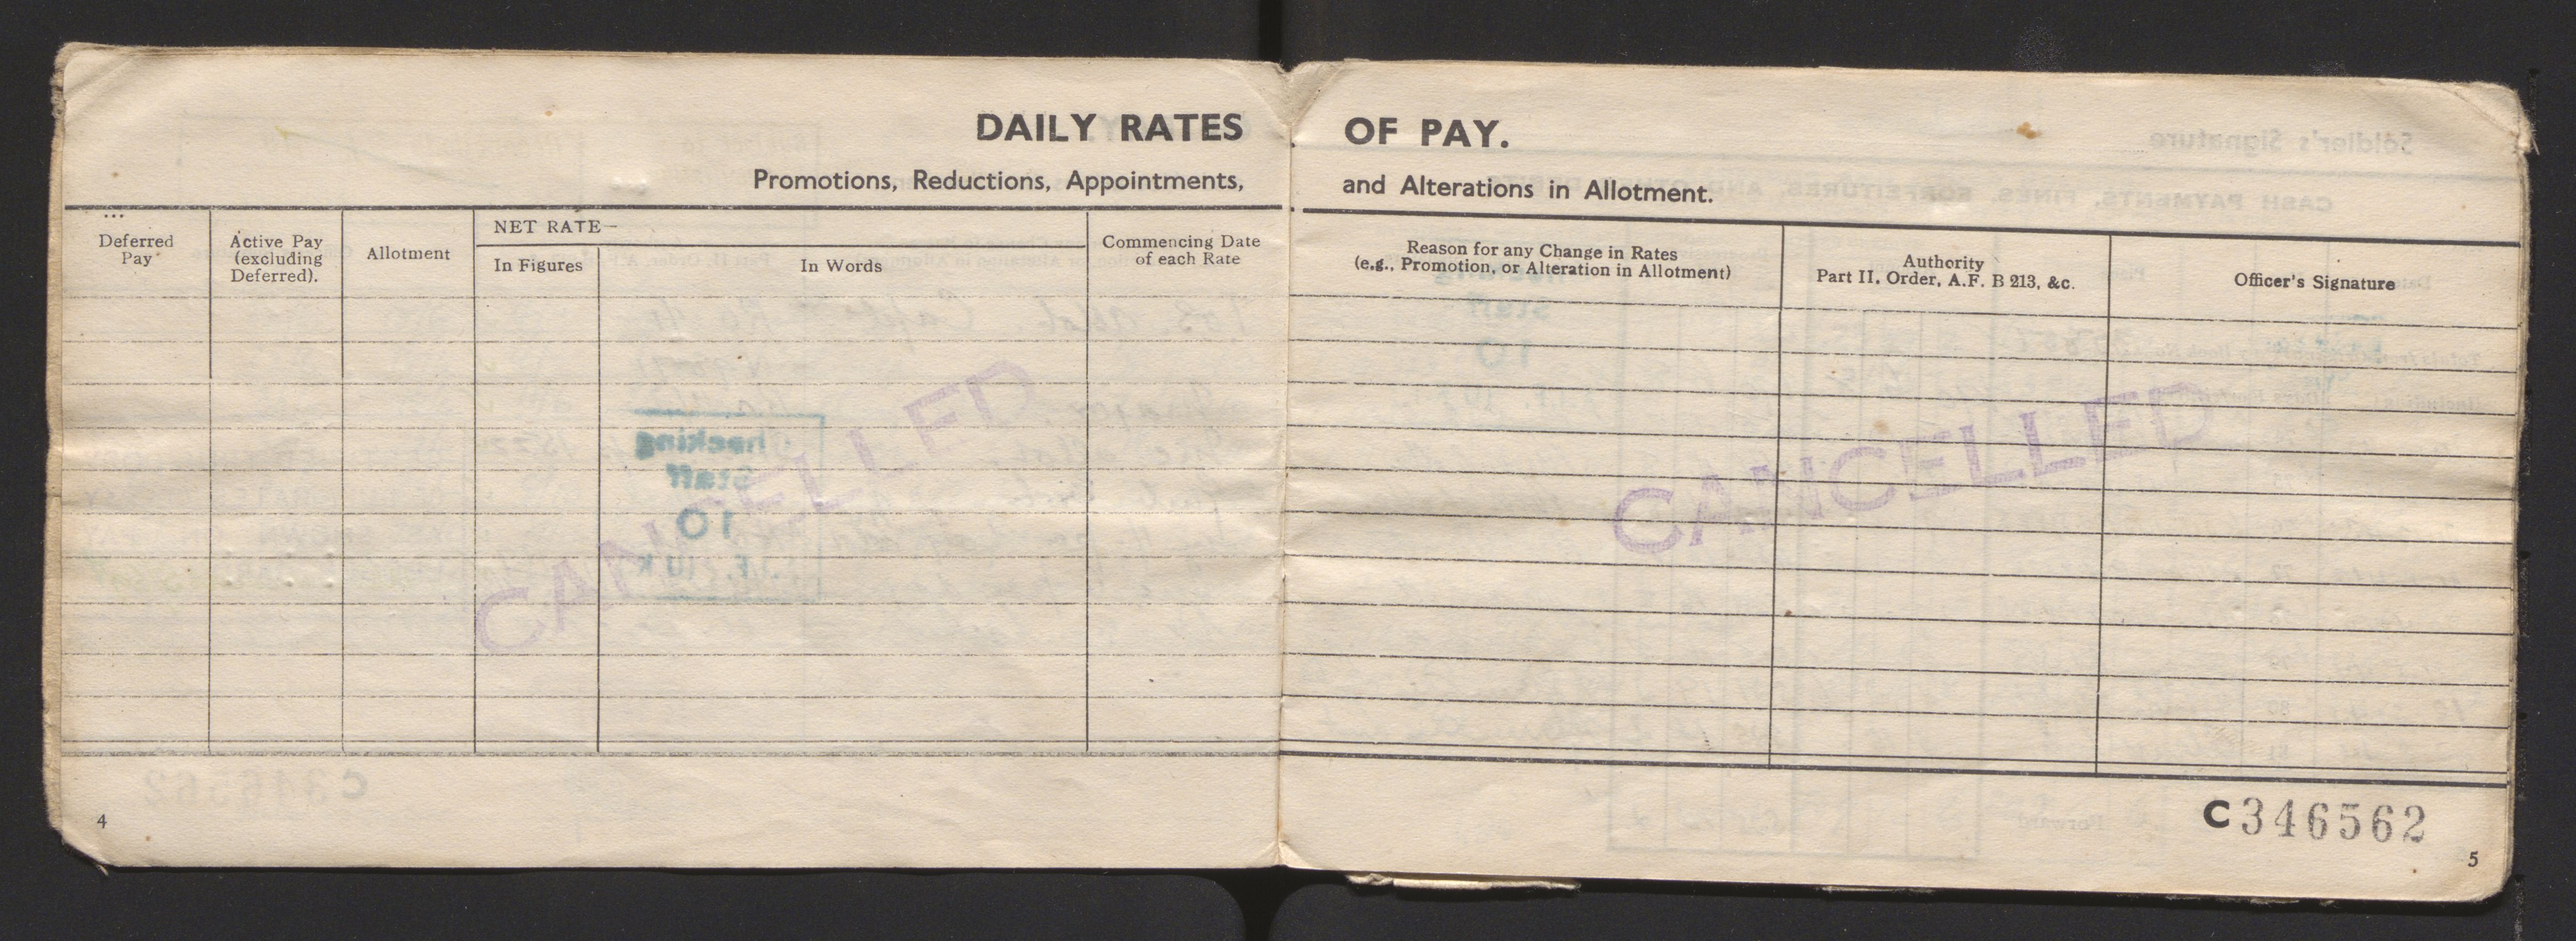 DAILY RATES OF PAY.
Promotions, Reductions, Appointments, and Alterations in Allotment.
Deferred Pay
Active Pay (excluding Deferred).
Allotment
NET RATE—
In Figures
In Words
Commencing Date of each Rate
Reason for any Change in Rates (e.g., Promotion, or Alteration in Allotment)
Authority Part II, Order, A.F. B 213, &c.
Officer's Signature
CANCELLED
CANCELLED
C346562
4
5